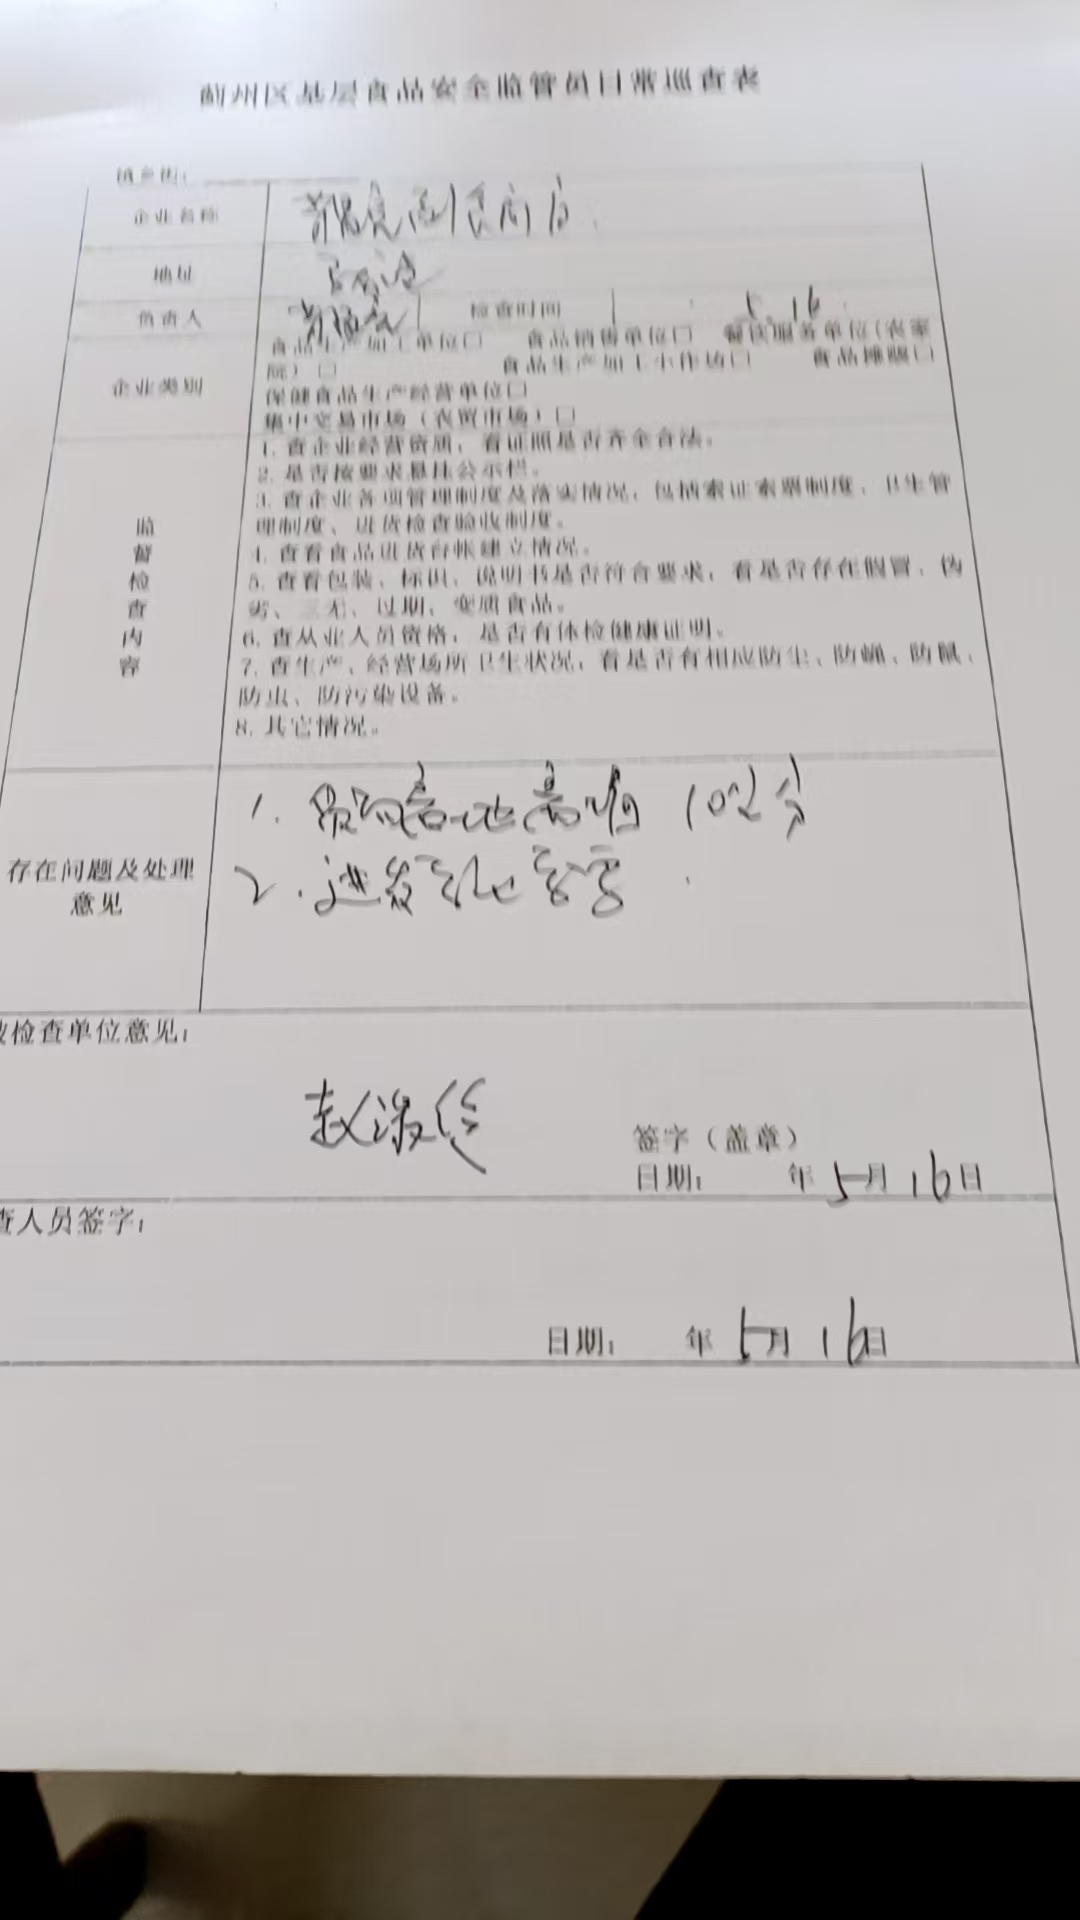 蓟州区基层食品安全监管员日常巡查表
镇乡街：
企业名称 副食商店
地址
负责人 检查时间 5.16
企业类别
食品生产加工单位□ 食品销售单位□ 餐饮服务单位（农家
院）□ 食品生产加工小作坊□ 食品摊贩□
保健食品生产经营单位□
集中交易市场（农贸市场）□
监督检查内容
1. 查企业经营资质，看证照是否齐全合法。
2. 是否按要求悬挂公示栏。
3. 查企业各项管理制度及落实情况，包括索证索票制度、卫生管
理制度、进货检查验收制度。
4. 查看食品进货台帐建立情况。
5. 查看包装、标识、说明书是否符合要求，看是否存在假冒、伪
劣、三无、过期、变质食品。
6. 查从业人员资格，是否有体检健康证明。
7. 查生产、经营场所卫生状况，看是否有相应防尘、防蝇、防鼠、
防虫、防污染设备。
8. 其它情况。
存在问题及处理
意见
1.
2.
检查单位意见：
赵
签字（盖章）
日期： 年 5月 16日
查人员签字：
日期： 年 5月 16日